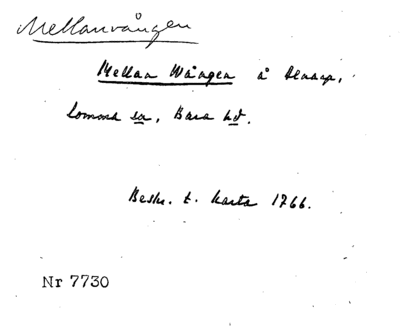 Mellanvången
Mellan Wången å Alnarp,
Lomma sn, Bara hd.
Beskr. t. karta 1766.
Nr 7730